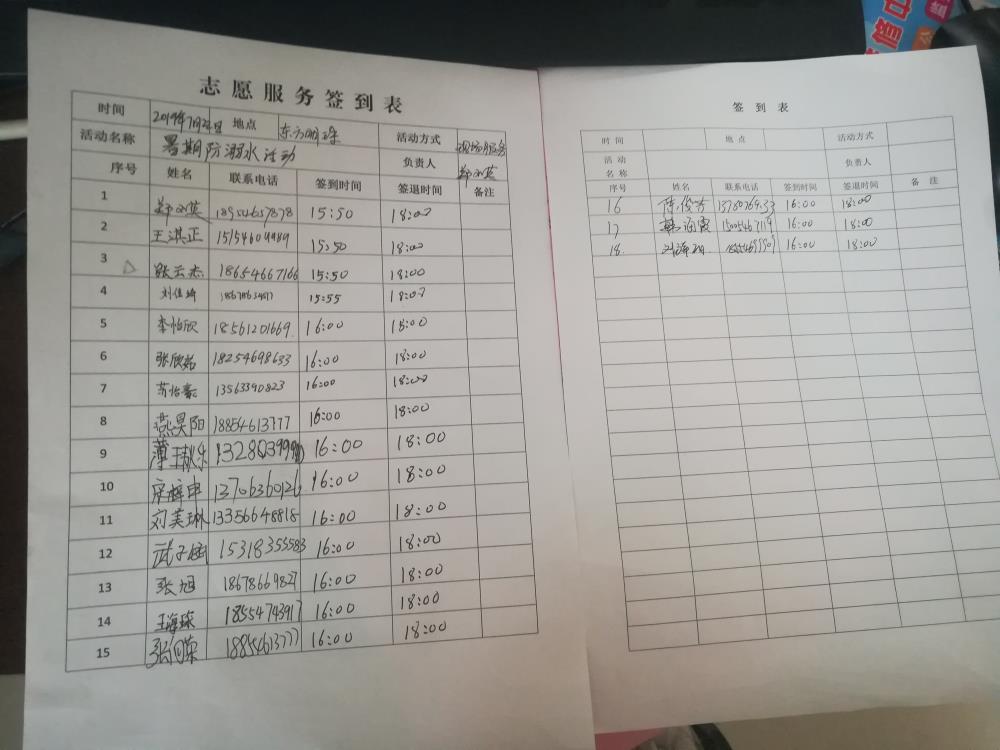 志愿服务签到表
时间 2019年7月28日 地点 东方明珠 活动方式 现场服务
活动名称 暑期防溺水活动 负责人
序号 姓名 联系电话 签到时间 签退时间 备注
1 18954657878 15:50 18:00
2 王淇正 15154604989 15:50 18:00
3 张云杰 18654667166 15:50 18:00
4 刘佳琦 15:55 18:00
5 李怡欣 18561201669 16:00 18:00
6 张欣茹 18254698633 16:00 18:00
7 13563390823 16:00 18:00
8 燕昊阳 18854613777 16:00 18:00
9 16:00 18:00
10 13706360126 16:00 18:00
11 刘美琳 13356648818 16:00 18:00
12 武子涵 15318355583 16:00 18:00
13 张旭 18678669827 16:00 18:00
14 王海珠 18554743917 16:00 18:00
15 18854613777 16:00 18:00
签到表
时间 地点 活动方式
活动名称 负责人
序号 姓名 联系电话 签到时间 签退时间 备注
16 陈俊秀 16:00 18:00
17 韩海霞 16:00 18:00
18 16:00 18:00